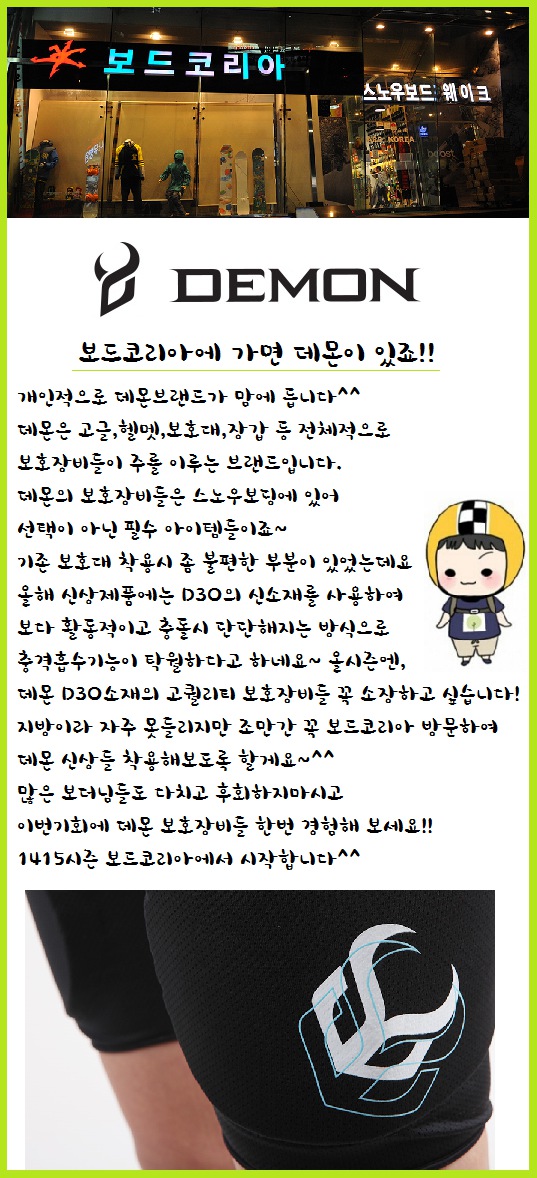 보드코리아
스노우보드 웨이크
DEMON
보드코리아에 가면 데몬이 있죠!!
개인적으로 데몬브랜드가 맘에 듭니다^^
데몬은 고글,헬멧,보호대,장갑 등 전체적으로
보호장비들이 주를 이루는 브랜드입니다.
데몬의 보호장비들은 스노우보딩에 있어
선택이 아닌 필수 아이템들이죠~
기존 보호대 착용시 좀 불편한 부분이 있었는데요
올해 신상제품에는 D3O의 신소재를 사용하여
보다 활동적이고 충돌시 단단해지는 방식으로
충격흡수기능이 탁월하다고 하네요~ 올시즌엔,
데몬 D3O소재의 고퀄리티 보호장비들 꼭 소장하고 싶습니다!
지방이라 자주 못들리지만 조만간 꼭 보드코리아 방문하여
데몬 신상들 착용해보도록 할게요~^^
많은 보더님들도 다치고 후회하지마시고
이번기회에 데몬 보호장비들 한번 경험해 보세요!!
1415시즌 보드코리아에서 시작합니다^^